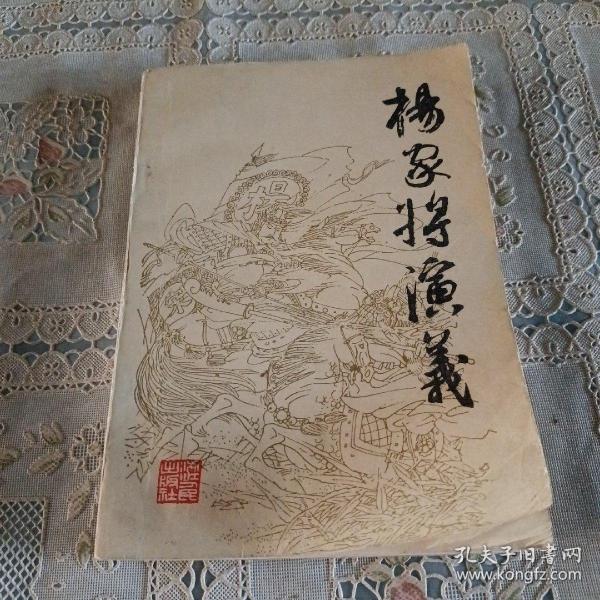 楊家将演義
楊
出版社
孔夫子旧書网
www.kongfz.com